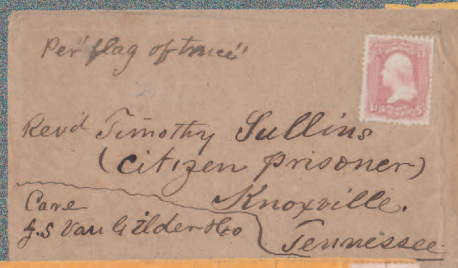 Per "flag of truce"
Revd Timothy Sullins
(citizen prisoner)
Knoxville.
Care
J.S Van Gilder & Co
Tennessee